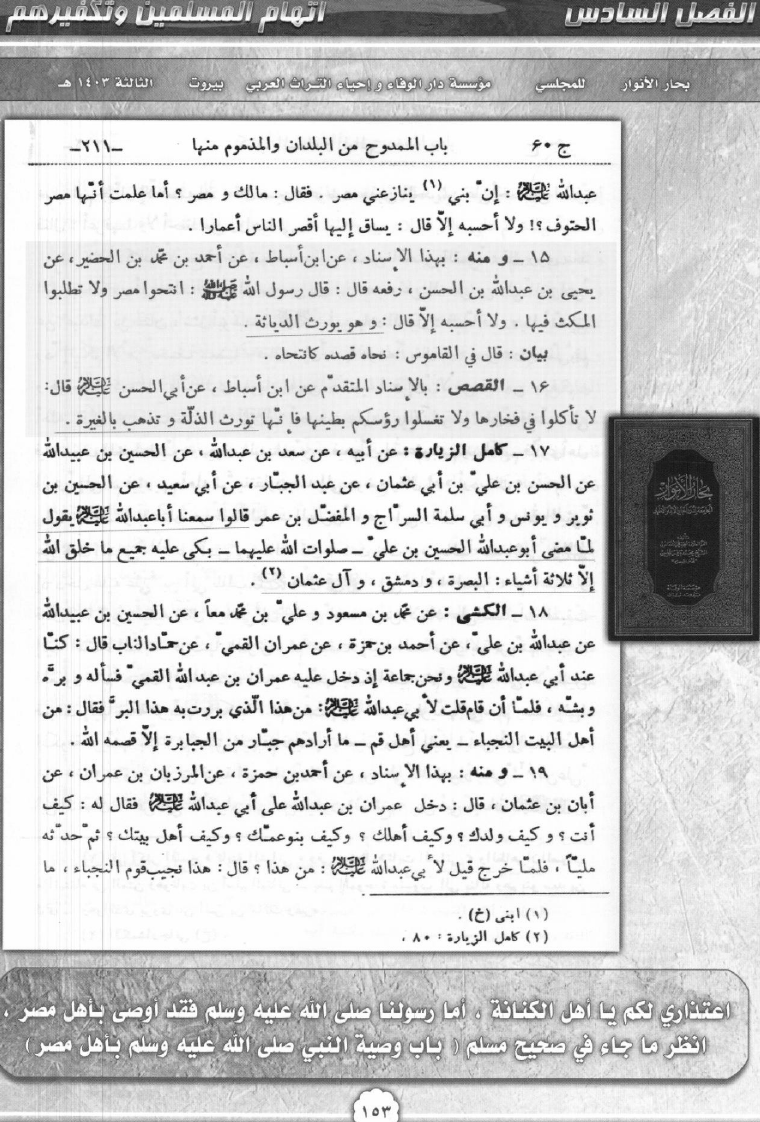 الفصل السادس
اتهام المسلمين وتكفيرهم
بحار الأنوار للمجلسي مؤسسة دار الوفاء و إحياء التراث العربي بيروت الثالثة ١٤٠٣ هـ
ج ٦٠ باب الممدوح من البلدان والمذموم منها ـ٢١١ـ
عبدالله عليه السلام : إنّ بني (١) ينازعني مصر . فقال : مالك و مصر ؟ أما علمت أنّها مصر
الحتوف ؟! ولا أحسبه إلّا قال : يساق إليها أقصر الناس أعمارا .
١٥ ـ و منه : بهذا الإسناد ، عن ابن أسباط ، عن أحمد بن محمّد بن الحضير، عن
يحيى بن عبدالله بن الحسن ، رفعه قال : قال رسول الله صلى الله عليه وآله : انتحوا مصر ولا تطلبوا
المكث فيها . ولا أحسبه إلّا قال : و هو يورث الدياثة .
بيان : قال في القاموس : نحاه قصده كانتحاه .
١٦ ـ القصص : بالإسناد المتقدّم عن ابن أسباط ، عن أبي الحسن عليه السلام قال:
لا تأكلوا في فخارها ولا تغسلوا رؤسكم بطينها فإنّها تورث الذلّة و تذهب بالغيرة .
١٧ ـ كامل الزيارة : عن أبيه ، عن سعد بن عبدالله ، عن الحسين بن عبيدالله
عن الحسن بن عليّ بن أبي عثمان ، عن عبد الجبّار ، عن أبي سعيد ، عن الحسين بن
ثوير و يونس و أبي سلمة السرّاج و المفضّل بن عمر قالوا سمعنا أباعبدالله عليه السلام يقول
لمّا مضى أبوعبدالله الحسين بن عليّ ـ صلوات الله عليهما ـ بكى عليه جميع ما خلق الله
إلّا ثلاثة أشياء : البصرة ، و دمشق ، و آل عثمان (٢)
١٨ ـ الكشى : عن محمّد بن مسعود و عليّ بن محمّد معاً ، عن الحسين بن عبيدالله
عن عبدالله بن عليّ ، عن أحمد بن حمزة ، عن عمران القميّ ، عن حمّاد الناب قال : كنّا
عند أبي عبدالله عليه السلام ونحن جماعة إذ دخل عليه عمران بن عبدالله القميّ فسأله و برّه
وبشّه ، فلمّا أن قام قلت لأبي عبدالله عليه السلام: من هذا الّذي بررت به هذا البرّ فقال : من
أهل البيت النجباء ـ يعني أهل قم ـ ما أرادهم جبّار من الجبابرة إلّا قصمه الله .
١٩ ـ و منه : بهذا الإسناد ، عن أحمد بن حمزة ، عن المرزبان بن عمران ، عن
أبان بن عثمان ، قال : دخل عمران بن عبدالله على أبي عبدالله عليه السلام فقال له : كيف
أنت ؟ و كيف ولدك ؟ وكيف أهلك ؟ وكيف بنوعمّك ؟ وكيف أهل بيتك ؟ ثمّ حدّثه
مليّاً ، فلمّا خرج قيل لأبي عبدالله عليه السلام : من هذا ؟ قال : هذا نجيب قوم النجباء ، ما
(١) ابنى (خ) .
(٢) كامل الزيارة : ٨٠ ،
بحار الأنوار
اعتذاري لكم يا أهل الكنانة ، أما رسولنا صلى الله عليه وسلم فقد أوصى بأهل مصر ،
انظر ما جاء في صحيح مسلم ( باب وصية النبي صلى الله عليه وسلم بأهل مصر )
١٥٣